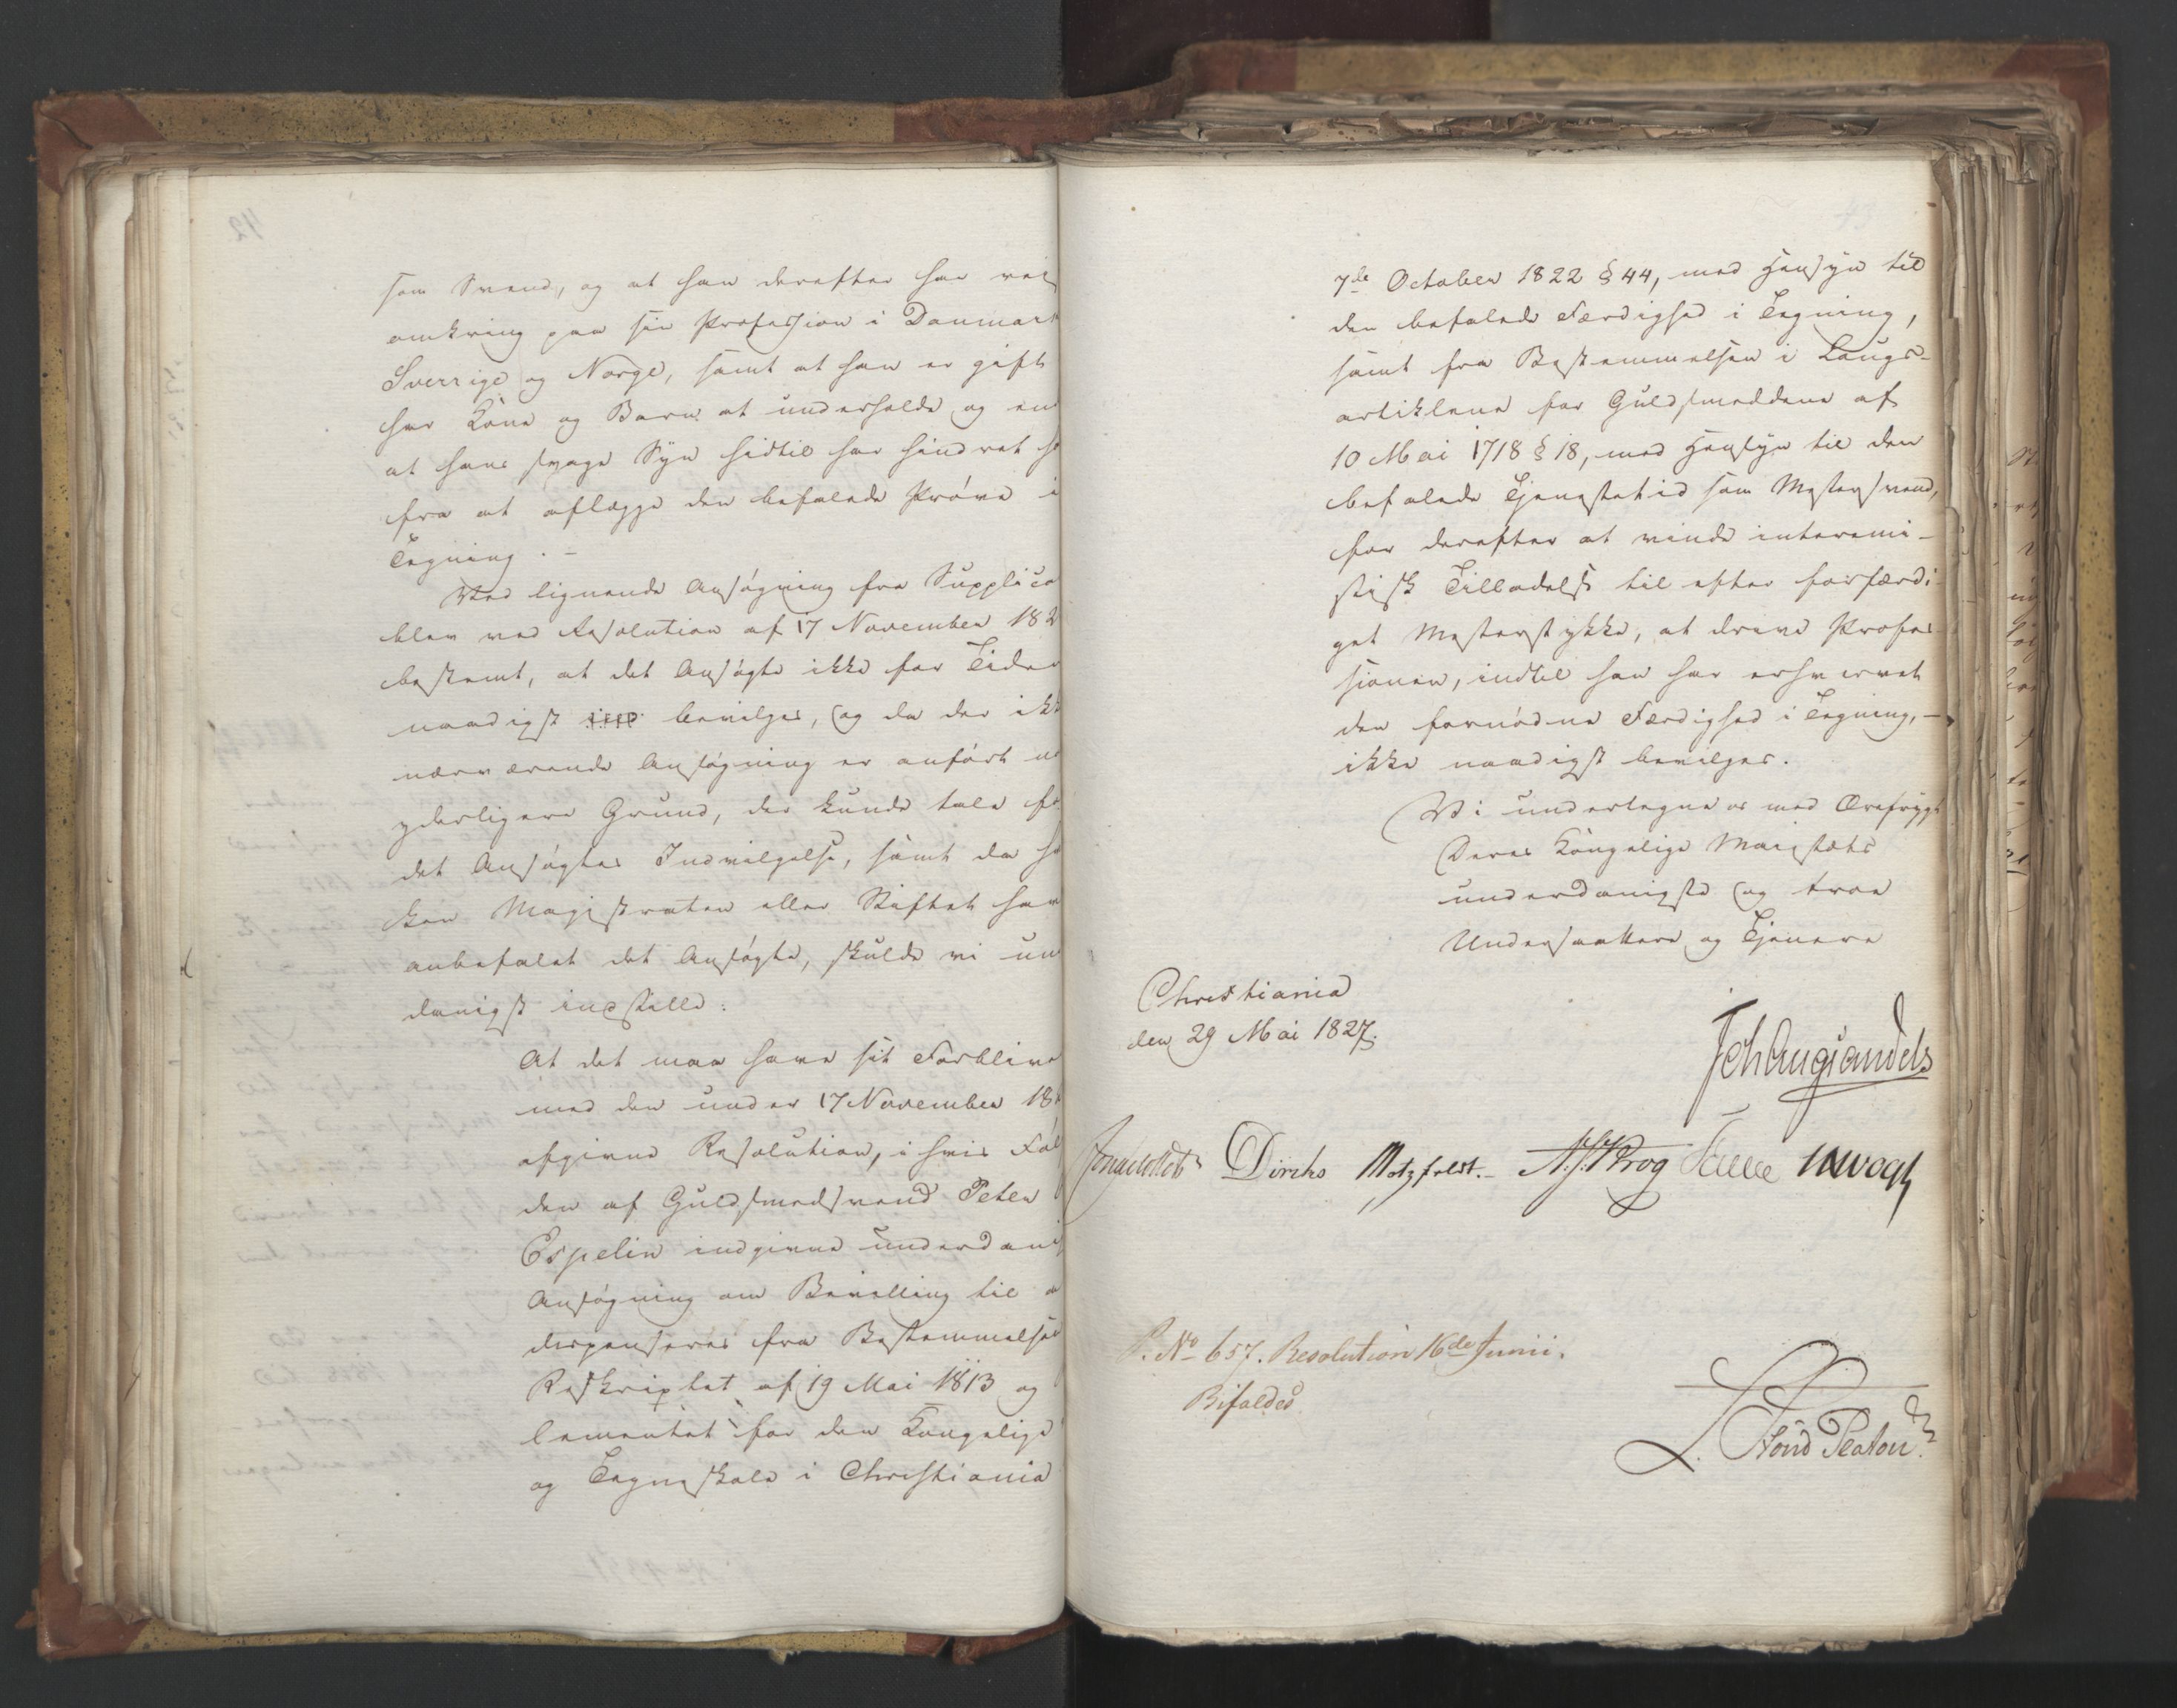 som Svend, og at han derefter har reist
omkring paa sin Profession i Danmark
Sverrige og Norge, samt at han er gift
har Kone og Barn at underholde og end
at hans svage Syn hidtil har hindret ha
fra at aflægge den befalede Prøve i
Tegning. –
Ved lignende Ansøgning fra Supplica
blev ved Resolution af 17 November 182
bestemt, at det Ansøgte ikke for Tiden
naadigst bevilges, og da der ikk
nærværende Ansøgning er anført no
yderligere Grund, der kunde tale fo
det Ansøgtes Indvilgelse, samt da h
ken Magistraten eller Stiftet har
anbefalet det Ansøgte, skulde vi un
danigst indstille:
At det maa have sit Forblive
med den under 17 November 18
afgivne Resolution, i hvis Føl
den af Guldsmedsvend Peter
Espelin indgivne underdani
Ansøgning om Bevilling til a
dispenseres fra Bestemmelse
Reskriptet af 19 Mai 1813 og
lementet for den Kongelige
og Tegneskole i Christiania
7de October 1822 § 44, med Hensyn til
den befalede Færdighed i Tegning,
samt fra Bestemmelsen i Laugs-
artiklene for Guldsmeddene af
10 Mai 1718 § 18, med Hensyn til den
befalede Tjenestetid som Mestersvend,
for derefter at vinde interemi-
stisk Tilladelse til efter forfærdi-
get Mesterstykke, at drive Profes-
sionen, indtil han har erhvervet
den fornødne Færdighed i Tegning, –
ikke naadigst bevilges.
Vi undertegne os med Ærefrygt
Deres Kongelige Majestæts
underdanigste og troe
Undersaattere og Tjenere
Christiania
den 29 Mai 1827.
Joh Aug Sandels
Diriks Motzfeldt. A. J. Krog Fasting JHVogt
P. No 657. Resolution 16de Junii.
Bifaldes